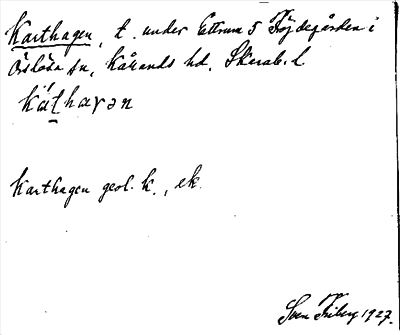 Karthagen, t. under Ettrum 5 Höjdegården i
Öslösa sn, Kållands hd. Skarab. l.
káṯhaɣən
Karthagen geol. k., ek.
Sven Friberg 1927.